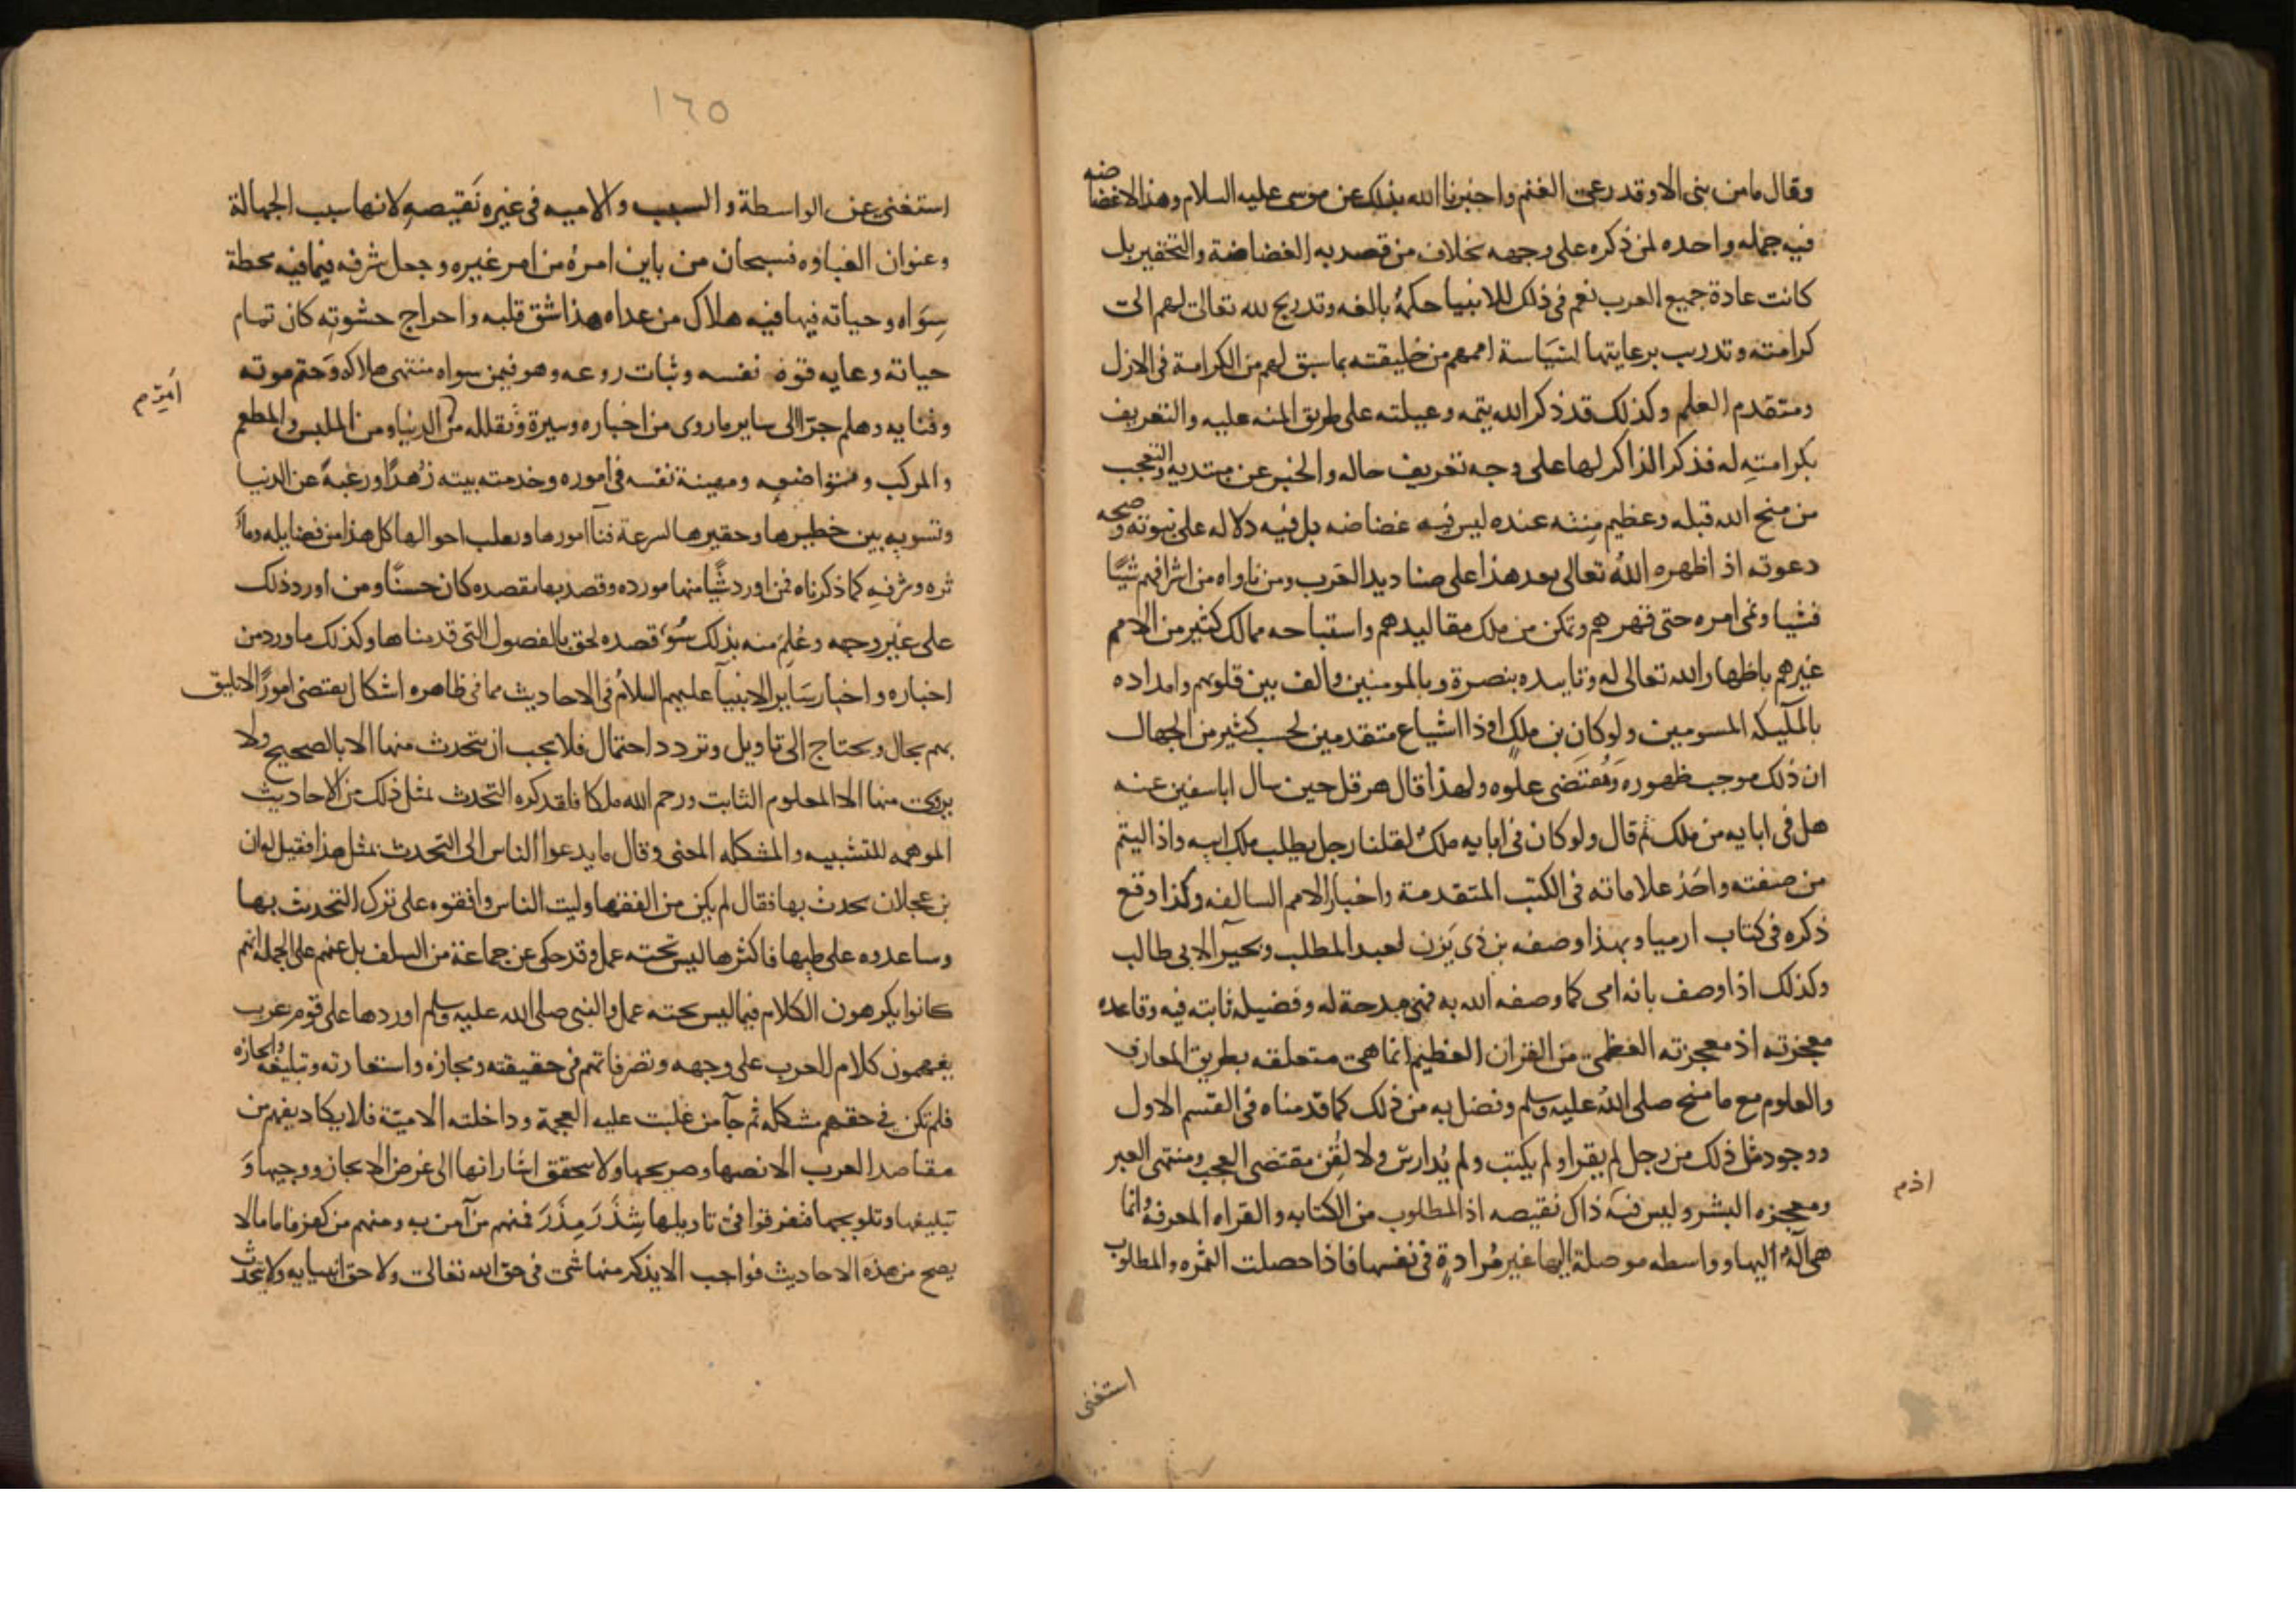 وقال ما من نبى الا وقد رعى الغنم واخبرنا الله بذلك عن موسى عليه السلام وهذا لا غضاضه
فيه جمله واحده لمن ذكره على وجهه بخلاف من قصد به الغضاضة والتحقير بل
كانت عادة جميع العرب نعم فى ذلك للانبيا حكمة بالغه وتدريج لله تعالى لهم الى
كرامته وتدريب برعايتها لسياسة اممهم من خليقته بما سبق لهم من الكرامة فى الازل
ومتقدم العلم وكذلك قد ذكر الله يتمه وعيلته على طريق المنه عليه والتعريف
بكرامتِه له فذكر الذاكر لها على وجه تعريف حاله والخبر عن مبتديه والتعجب
من منح الله قبله وعظيم منته عنده ليس فيه غضاضه بل فيه دلاله على نبوته وصحه
دعوته اذ اظهره الله تعالى بعد هذا على صناديد العرب ومن ناواه من اشرافهم شيًا
فشيا ونمى امره حتى قهرهم وتمكن من ملك مقاليدهم واستباحه ممالك كثير من الامم
غيرهم باظهار الله تعالى له وتاييده بنصرة وبالمومنين والف بين قلوبهم وامداده
بالملٓيكه المسومين ولو كان بن ملكٍ او ذا اشياع متقدمين لحسب كثير من الجهال
ان ذلك موجب ظهوره ومُقتَضى علوه ولهذا قال هرقل حين سال ابا سفين عنه
هل فى ابايه من ملك ثم قال ولو كان فى ابايه ملكٌ لقلنا رجل يطلب ملك ابيه واذا اليتم
من صفته واحَد علاماته فى الكتب المتقدمة واخبار الامم السالفه وكذا وقع
ذكره فى كتاب ارميا وبهذا وصفه بن ذى يَزن لعبد المطلب وبحيرآ لابى طالب
وكذلك اذا وصف بانه امى كما وصفه الله به فهى مدحة له وفضيله ثابته فيه وقاعده
معجزته اذ معجزته العظمى من القران العظيم انما هى متعلقه بطريق المعارف
والعلوم مع ما منح صلى الله عليه وسلم وفضل به من ذلك كما قدمناه فى القسم الاول
ووجود مثل ذلك من رجل لم يقرا ولم يكتب ولم يُدارس ولا لُقِن مقتضى العجب ومنتهى العبر
ومعجزه البشر وليس فيه ذاك نقيصه اذ المطلوب من الكتابه والقراه المعرفه وانما
اذ م
هى آلهٌ اليها وواسطه موصلة اليها غير مُرادةٍ فى نفسها فاذا حصلت الثمره والمطلوب
استغنى
١٦٥
استغنى عن الواسطة والسبب والاميه فى غيره نَقيصهِ لانها سبب الجهالة
وعنوان الغباوه فسبحان من باين امرهُ من امر غيره وجعل شرفه فيما فيه محطة
سِوَاه وحياته فيها فيه هلاك من عداه هذا شق قلبه واخراج حشوتِه كان تمام
حياته وغايه قوة نفسه وثبات روعه وهو فيمن سواه منتهى هلاكه وَحتم موته
امِرم
وفنايه وهلم جرّا الى ساير ما روى من اخباره وسيرة وتقلله من الدنيا ومن الملبس والمطعم
والمركب وتواضعه ومهينة نفسه فى اموره وخدمته بيته زهدًا ورغبةً عن الدنيا
وتسويه بين خطيرها وحقيرها لسرعة فنآ امورها وتعلب احوالها كل هذا من فضايله وماٰ
ثره وشرفِهِ كما ذكرناه فمن اورد شيًا منها مورده وقصد بها مقصده كان حسنًا ومن اورد ذلك
على غير وجهه وعُلِمَ منه بذلك سُوء قصده لحق بالفصول التى قدمناها وكذلك ما ورد من
اخباره واخبار سَاير الانبيآ عليهم السلامُ فى الاحاديث مما فى ظاهره اشكال يقتضى امورًا لا تليق
بهم بحال ويحتاج الى تاويل وتردد احتمال فلا يجب ان يتحدث منها الا بالصحيح ولا
يروى منها الا المعلوم الثابت ورحم الله ملكا فلقد كره التحدث بمثل ذلك من الاحاديث
الموهمه للتشبيه والمشكله المعنى وقال ما يدعوا الناس الى التحدث بمثل هذا فقيل له ان
بن عجلان يحدث بها فقال لم يكن من الفقها وليت الناس وافقوه على ترك التحديث بها
وساعدوه على طيها فاكثرها ليس تحته عمل وقد حكى عن جماعة من السلف بل عنهم على الجمله انهم
كانوا يكرهون الكلام فيما ليس تحته عمل والنبى صلى الله عليه وسلم اوردها على قوم عرب
يفهمون كلام العرب على وجهه وتصرفاتهم فى حقيقته ومجازه واستعارته وتبليغه وايجازه
فلم تكن فى حقهم مشكله ثم جآ من غلبت عليه العجمة وداخلته الاميّة فلا يكاد يفهم من
مقاصد العرب الا نصها وصريحها ولا يتحقق اشاراتها الى غرض الايجاز ووحيها وَ
تبليغها وتلويحها فتفرقوا فى تاويلها شِذَرَ مِذَرَ فمنهم من آمن به ومنهم من كفر فاما ما لا
يصح من هذه الاحاديث فواجب الا يذكر منها شى فى حق الله تعالى ولا حق انبيايه ولا يتحدث